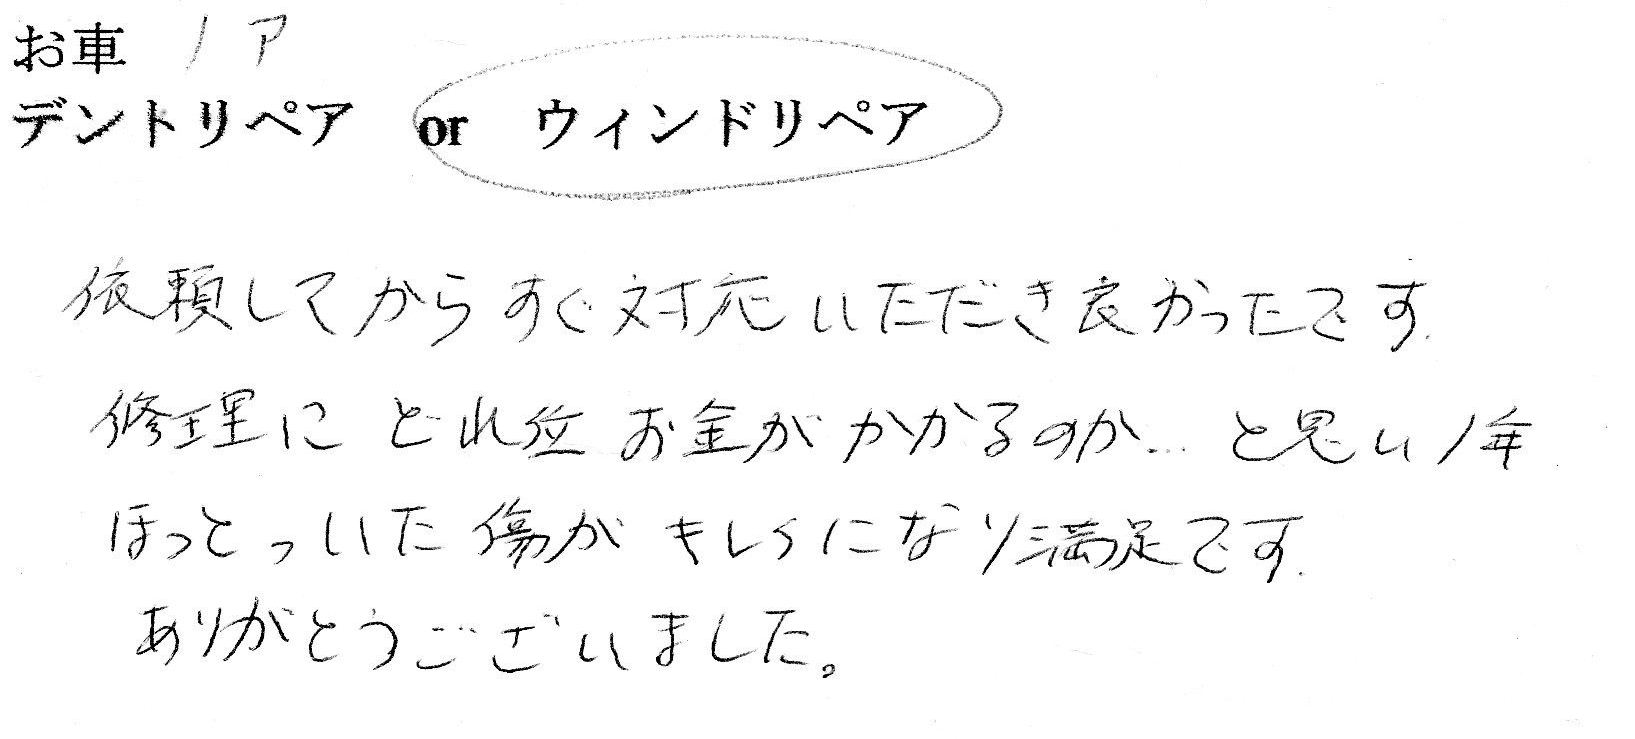 お車 ノア
デントリペア or ウィンドリペア
依頼してからすぐ対応いただき良かったです.
修理にどれ位お金がかかるのか… と思い1年
ほっとっいた傷がキレイになり満足です.
ありがとうございました。